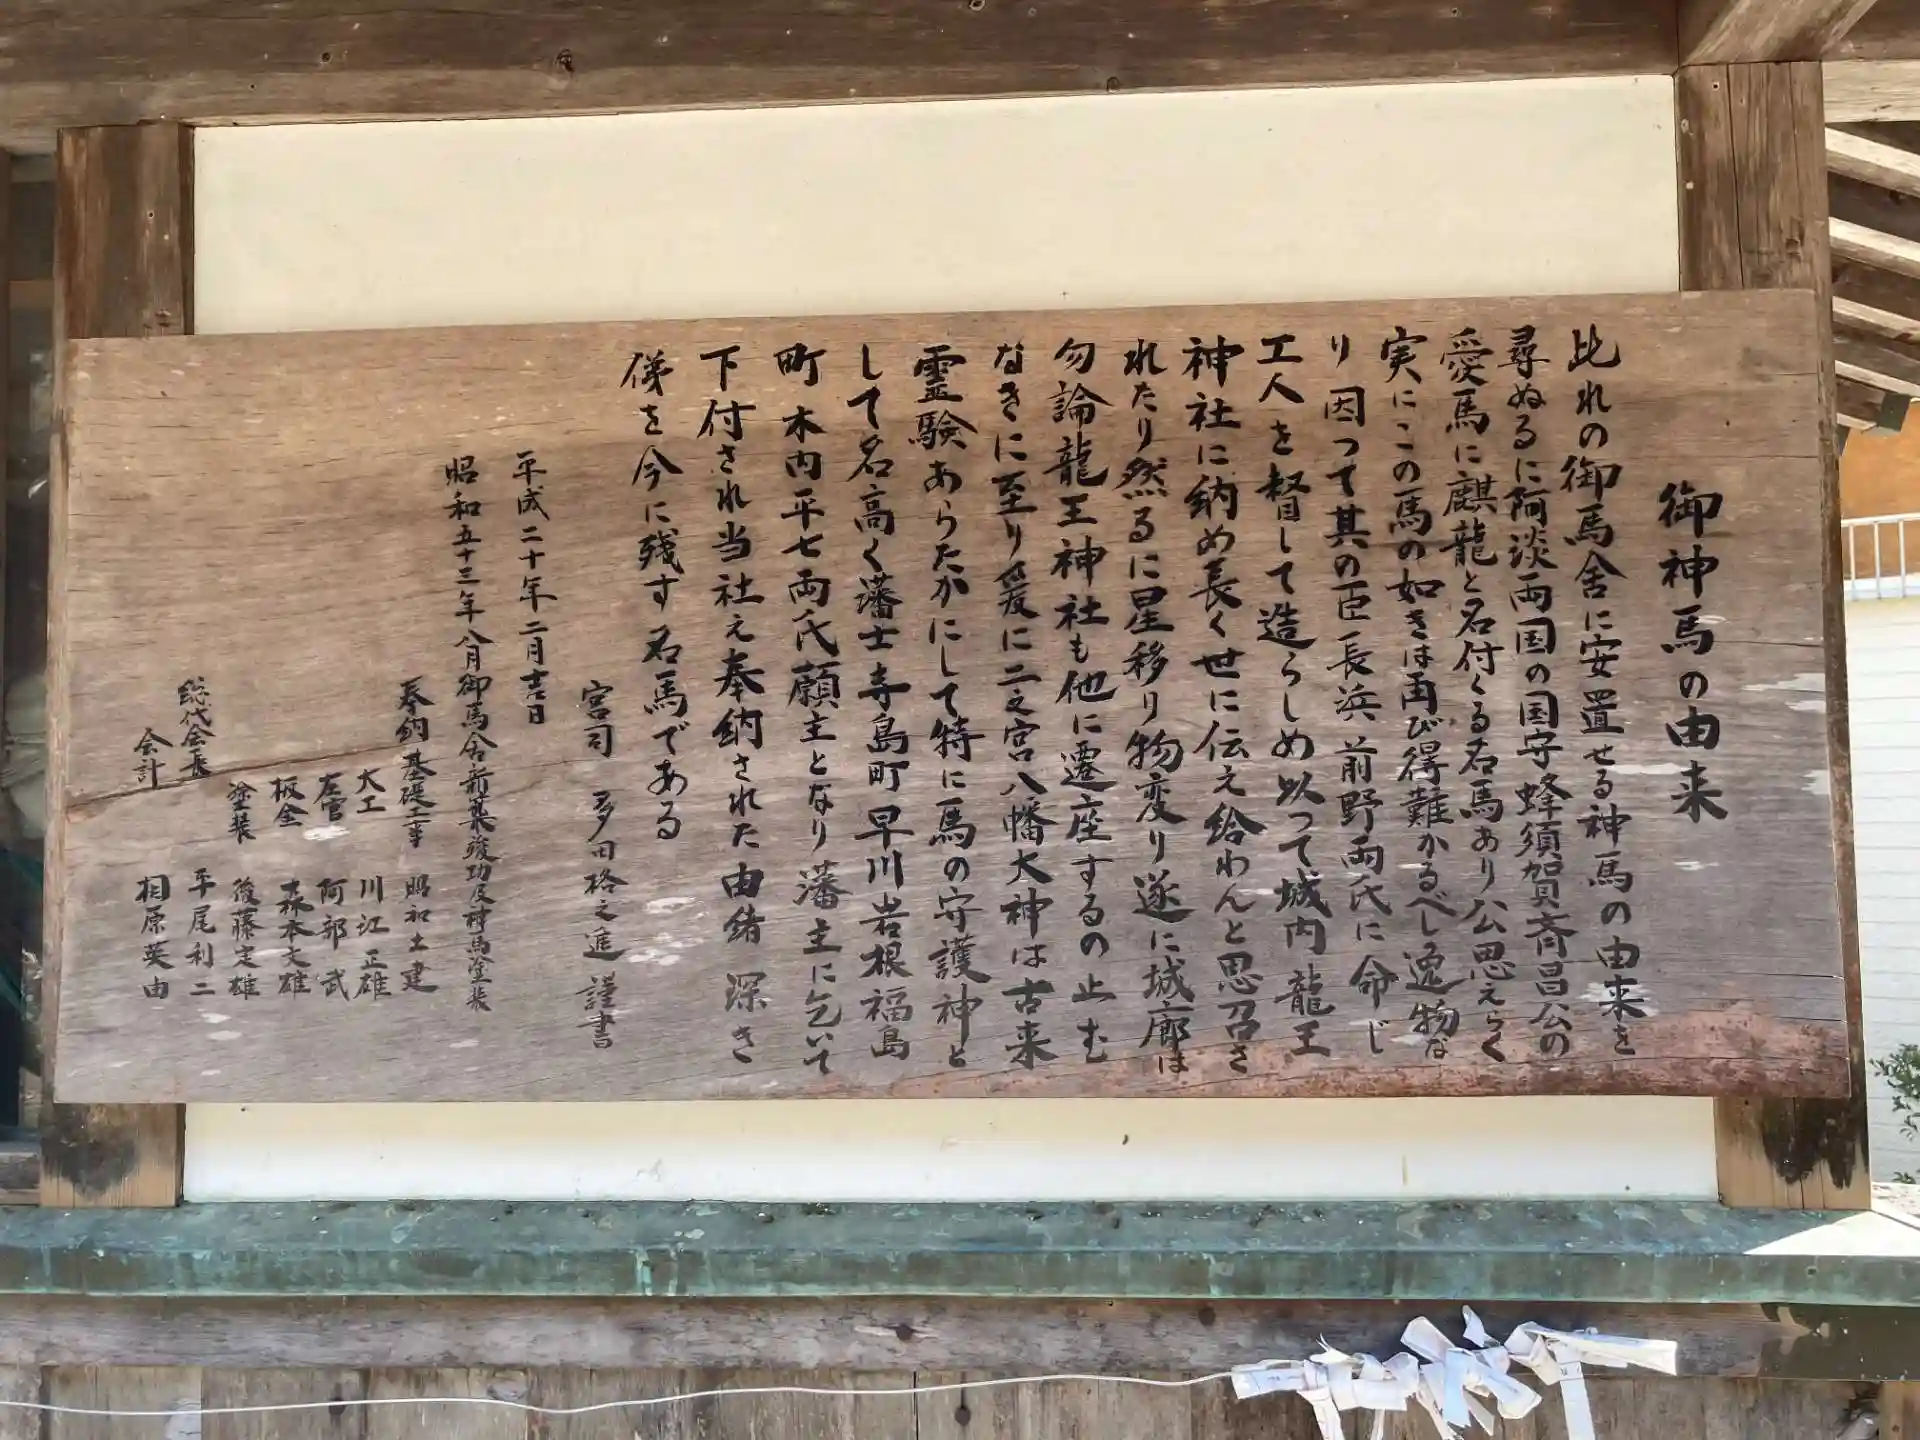 御神馬の由来
此れの御馬舎に安置せる神馬の由来を
尋ぬるに阿淡両国の国守蜂須賀斉昌公の
愛馬に麒龍と名付くる名馬あり公思えらく
実にこの馬の如きは再び得難かるべし逸物な
り因つて其の臣長浜前野両氏に命じ
工人を督して造らしめ以つて城内龍王
神社に納め長く世に伝え給わんと思召さ
れたり然るに星移り物変り遂に城廓は
勿論龍王神社も他に遷座するの止む
なきに至り爰に二之宮八幡大神は古来
霊験あらたかにして特に馬の守護神と
して名高く藩士寺島町早川岩根福島
町木内平七両氏願主となり藩主に乞いて
下付され当社え奉納された由緒深き
儀を今に残す名馬である
宮司 多田格之進 謹書
平成二十年二月吉日
昭和五十三年八月御馬舎新築竣功及神馬塗装
奉納 基礎工事 昭和土建
大工 川江正雄
左官 阿部武
板金 森本文雄
塗装 後藤定雄
総代会長 平尾利二
会計 相原英由